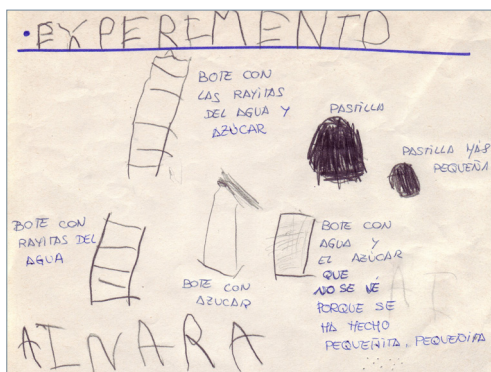 •EXPERIMENTO
BOTE CON
LAS RAYITAS
DEL AGUA Y
AZÚCAR
PASTILLA
PASTILLA MÁS
PEQUEÑA
BOTE CON
RAYITAS DEL
AGUA
BOTE CON
AZUCAR
BOTE CON
AGUA Y
EL AZÚCAR
QUE
NO SE VÉ
PORQUE SE
HA HECHO
PEQUEÑITA, PEQUEÑITA
AINARA